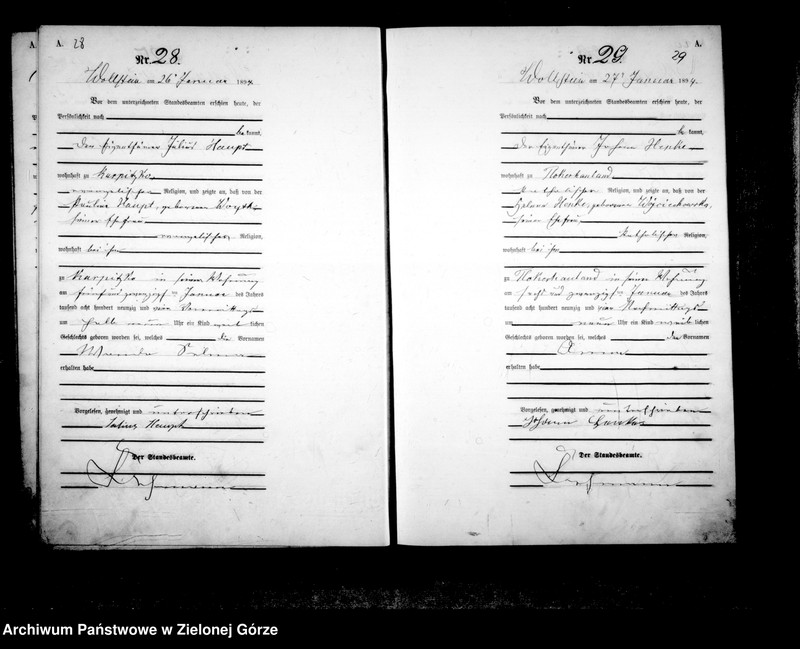 A. 28
Nr. 28.
Wollstein am 26ⁿ Januar 1894.
Vor dem unterzeichneten Standesbeamten erschien heute, der
Persönlichkeit nach
bekannt,
der Eigenthümer Julius Haupt
wohnhaft zu Karpitzko
evangelischer Religion, und zeigte an, daß von der
Pauline Haupt, geborenen
seiner Ehefrau
evangelischer Religion,
wohnhaft bei ihm
zu Karpitzko in seiner Wohnung
am fünfundzwanzigsten Januar des Jahres
tausend acht hundert neunzig und vier Vormittags
um halb neun Uhr ein Kind weiblichen
Geschlechts geboren worden sei, welches die Vornamen
Selma
erhalten habe
Vorgelesen, genehmigt und unterschrieben
Julius Haupt
Der Standesbeamte.
29
A.
Nr. 29.
Wollstein am 27ⁿ Januar 1894.
Vor dem unterzeichneten Standesbeamten erschien heute, der
Persönlichkeit nach
bekannt,
der Eigenthümer Johann Henke
wohnhaft zu
katholischer Religion, und zeigte an, daß von der
Helene Henke, geborenen
seiner Ehefrau
katholischer Religion,
wohnhaft bei ihm
zu in seiner Wohnung
am sechs und zwanzigsten Januar des Jahres
tausend acht hundert neunzig und vier Nachmittags
um neun Uhr ein Kind weiblichen
Geschlechts geboren worden sei, welches den Vornamen
erhalten habe
Vorgelesen, genehmigt und unterschrieben
Johann
Der Standesbeamte.
Archiwum Państwowe w Zielonej Górze